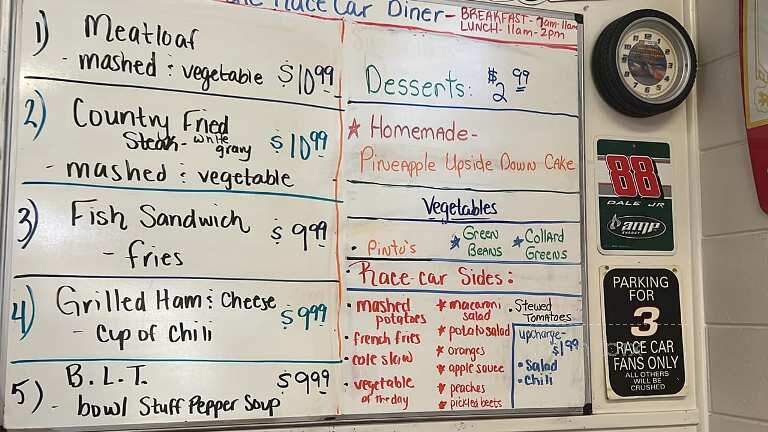 Race Car Diner - BREAKFAST - 7am-11am
LUNCH - 11am-2pm
1) Meatloaf
- mashed & vegetable $10.99
2) Country Fried
Steak - white gravy $10.99
- mashed & vegetable
3) Fish Sandwich $9.99
- fries
4) Grilled Ham & Cheese $9.99
- cup of chili
5) B.L.T. $9.99
- bowl Stuff Pepper Soup
Desserts: $2.99
★ Homemade-
Pineapple Upside Down Cake
Vegetables
• Pinto's ★ Green Beans ★ Collard Greens
Race-car Sides:
• mashed potatoes
• french fries
• cole slaw
• vegetable of the day
★ macaroni salad
★ potato salad
★ oranges
★ apple sauce
★ peaches
★ pickled beets
• Stewed Tomatoes
upcharge- $1.99
• Salad
• Chili
88
DALE JR
amp
ENERGY
PARKING
FOR
3
RACE CAR
FANS ONLY
ALL OTHERS
WILL BE
CRUSHED